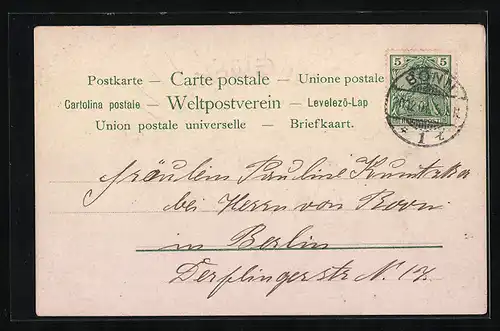 Postkarte — Carte postale — Unione postale
Cartolina postale — Weltpostverein — Levelező-Lap
Union postale universelle — Briefkaart.
5 5
BONN
* 1
Fräulein Pauline
bei Herrn von
in Berlin
Derflingerstr N. 17.